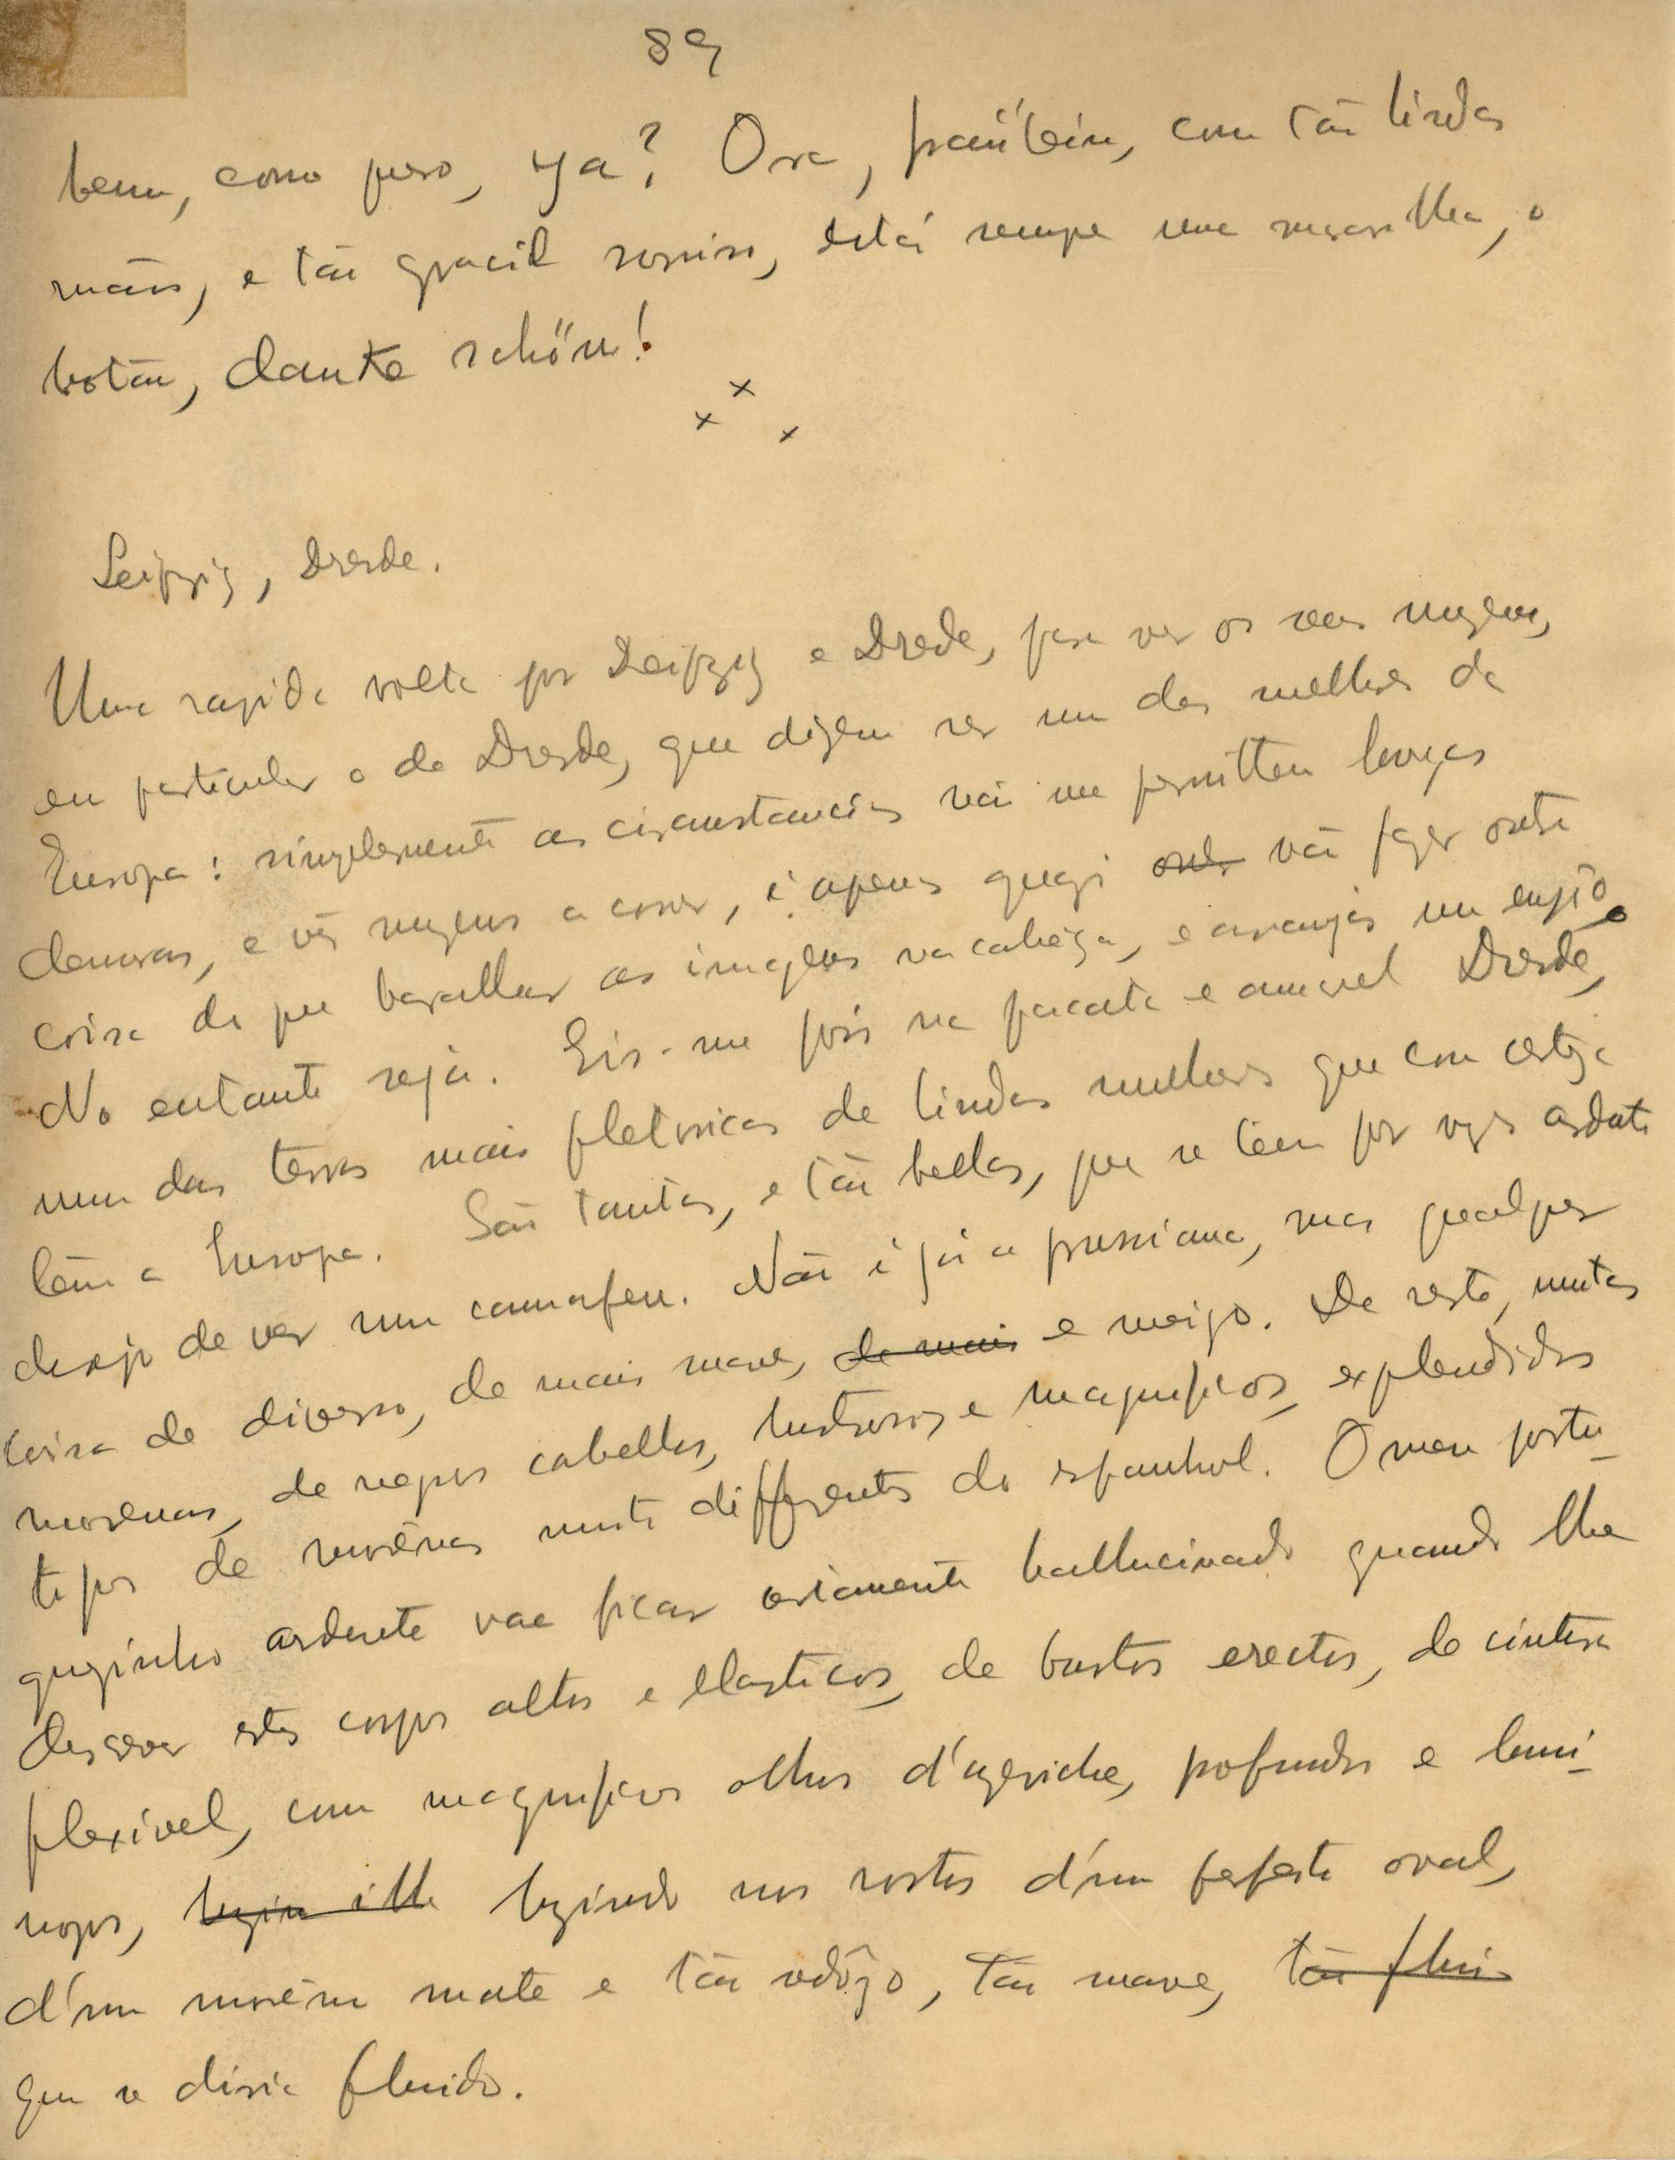 89
bem, como puro, ya? Ora, fraülein, com tão lindas
mãos, e tão gracil sorriso, está sempre uma maravilha, o
botão, danke schön!
x x x
Leipzig, Dresde.
Uma rapida volta por Leipzig e Dresde, para ver os seus muzeus,
em particular o de Dresde, que dizem ser um dos melhores da
Europa: simplesmente as circumstancias não me permittem longas
demoras, e vêr muzeus a correr, é apenas quazi não fazer outra
coisa do que baralhar as imagens na cabeça, e arranjar um enjôo.
No entanto seja. Eis-me pois na pacata e amavel Dresde,
numa das terras mais pletoricas de lindas mulheres que com certeza
tem a Europa. São tantas, e tão bellas, que se tem por vezes ardente
desejo de ver um camafeu. Não é já a prussiana, mas qualquer
coisa de diverso, de mais suave, de mais e meigo. De resto, muitas
morenas, de negros cabellos, lustrosos e magnificos, explendidos
typos de morênas muito differentes do espanhol. O meu portu-
guezinho ardente vae ficar certamente hallucinado quando lhe
descrever estes corpos altos e elasticos, de bustos erectos, de cintura
flexivel, com magnificos olhos d'azeviche, profundos e lumi-
nosos, luzindo nos rostos d'um perfeito oval,
d'um morêno mate e tão suave, tão flui
que se diria fluido.